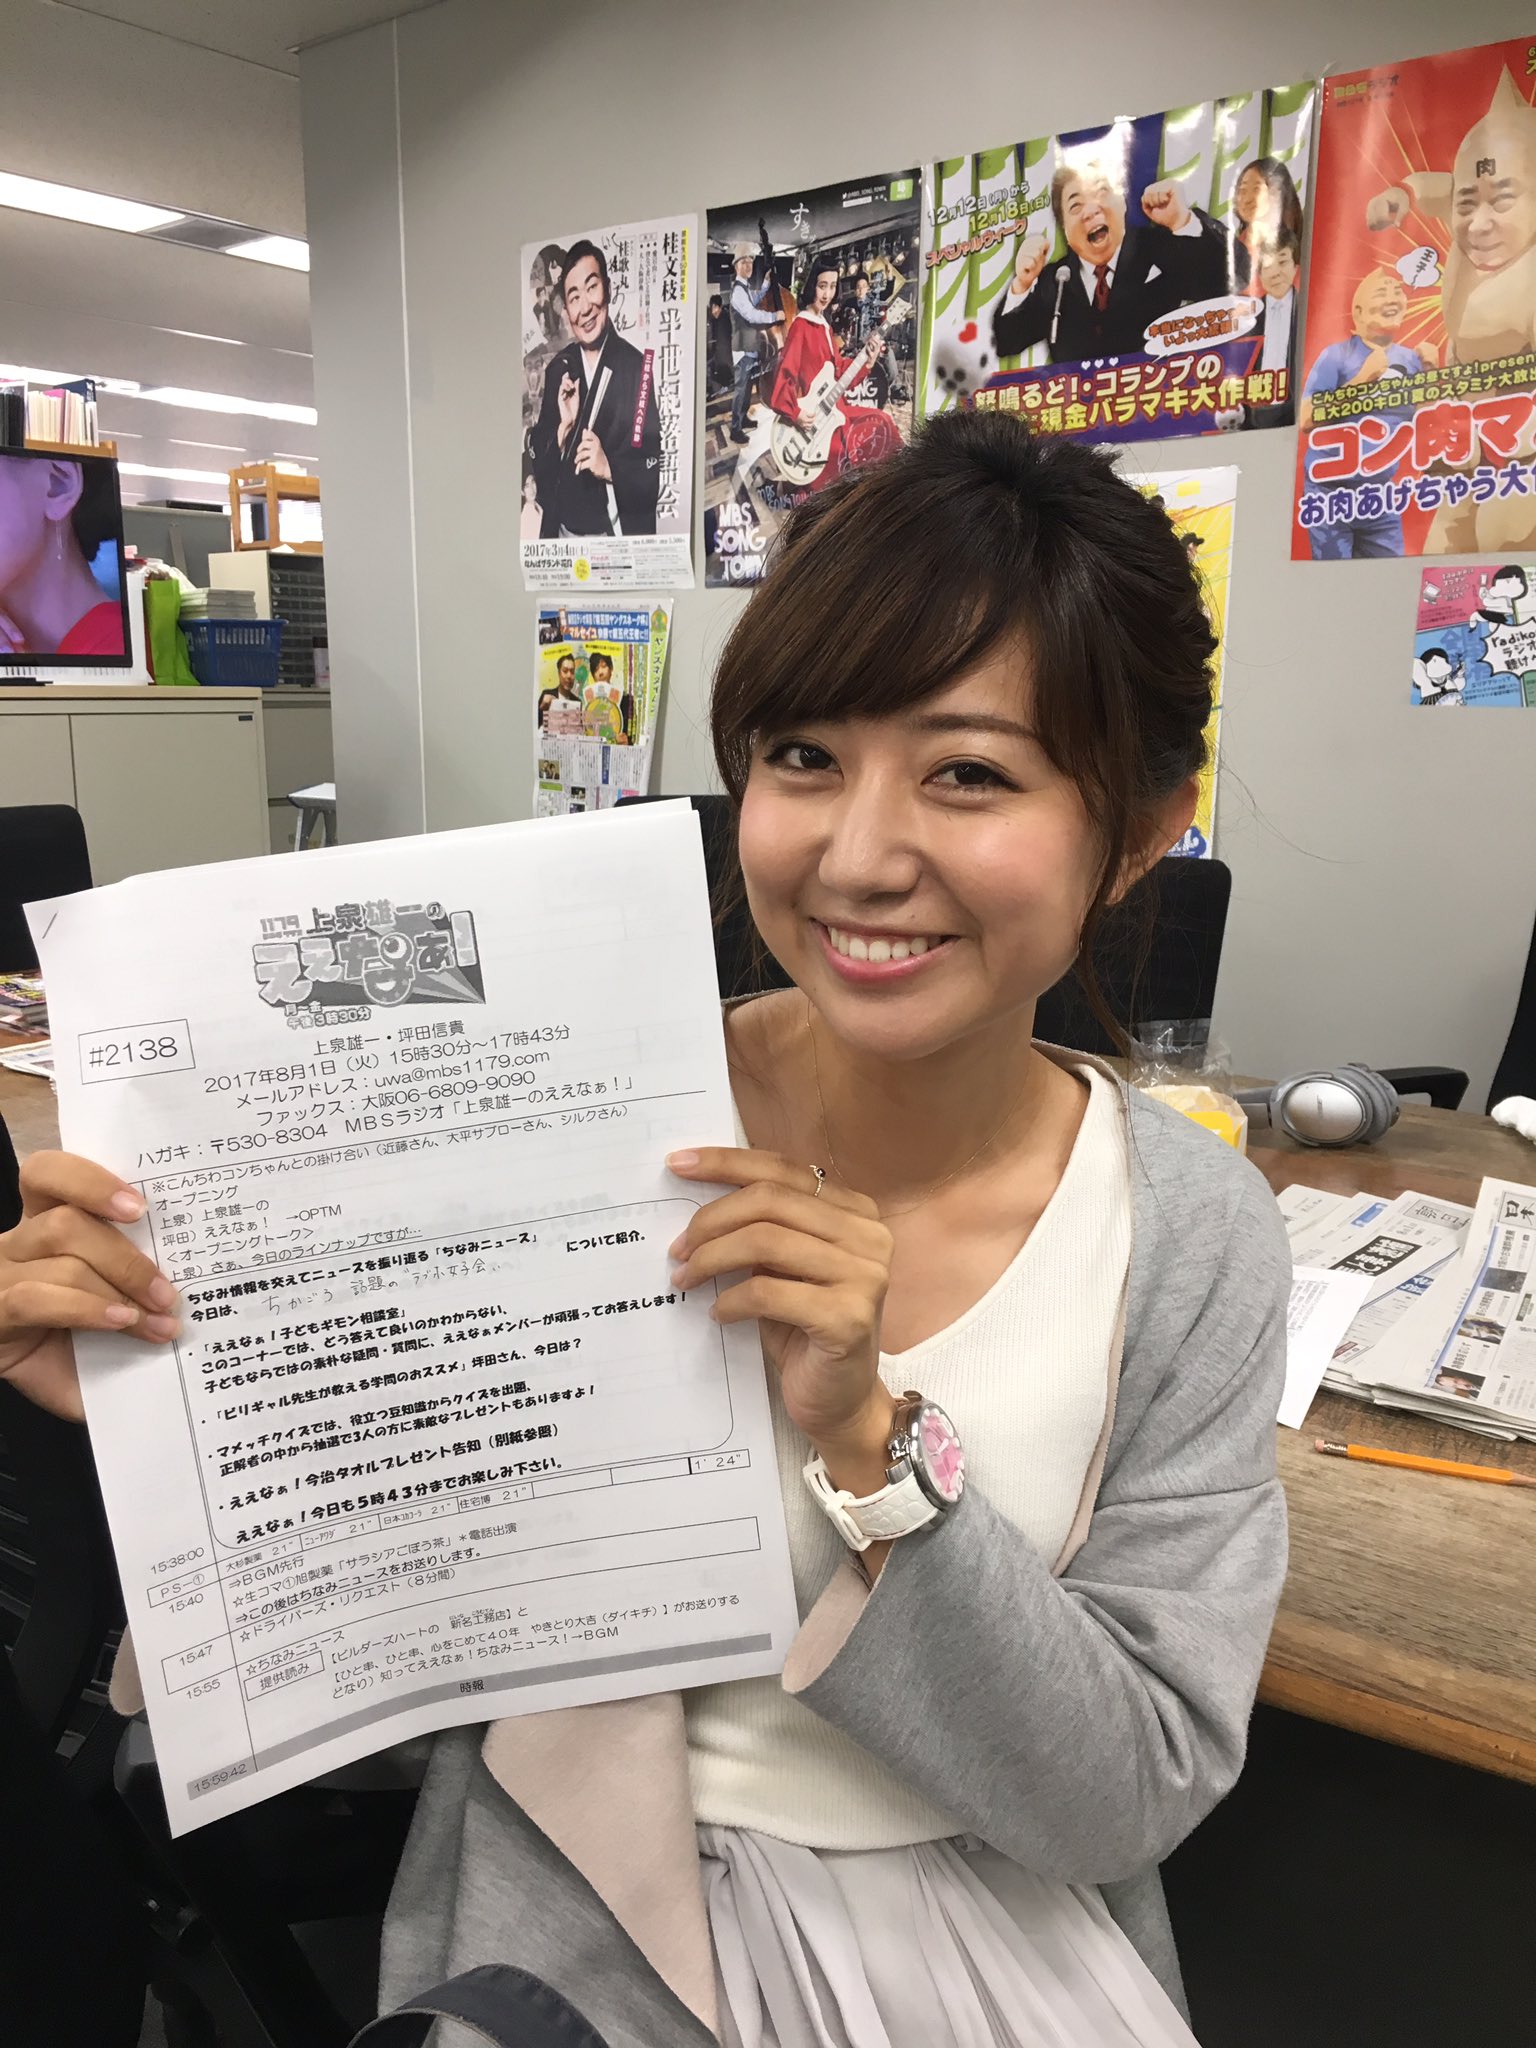 1179 上泉雄一の
ええなぁ!
月～金
午後3時30分
#2138
上泉雄一・坪田信貴
2017年8月1日（火）15時30分～17時43分
メールアドレス：uwa@mbs1179.com
ファックス：大阪06-6809-9090
ハガキ：〒530-8304　MBSラジオ「上泉雄一のええなぁ！」
※こんちわコンちゃんとの掛け合い（近藤さん、大平サブローさん、シルクさん）
オープニング
上泉）上泉雄一の
坪田）ええなぁ！　→OPTM
＜オープニングトーク＞
上泉）さぁ、今日のラインナップですが…
ちなみ情報を交えてニュースを振り返る「ちなみニュース」
今日は、ちかごろ 話題の“ラブホ女子会” について紹介。
・「ええなぁ！子どもギモン相談室」
このコーナーでは、どう答えて良いのかわからない、
子どもならではの素朴な疑問・質問に、ええなぁメンバーが頑張ってお答えします！
・「ビリギャル先生が教える学問のおススメ」坪田さん、今日は？
・マメッチクイズでは、役立つ豆知識からクイズを出題、
正解者の中から抽選で3人の方に素敵なプレゼントもありますよ！
・ええなぁ！今治タオルプレゼント告知（別紙参照）
ええなぁ！今日も5時43分までお楽しみ下さい。
15:38:00 大杉製薬 21" ニューアワダ 21" 日本コカコーラ 21" 住宅博 21" 1' 24"
PS-① ⇒BGM先行
15:40 ☆生コマ①旭製薬「サラシアごぼう茶」＊電話出演
⇒この後はちなみニュースをお送りします。
15:47 ☆ドライバーズ・リクエスト（8分間）
15:55 ☆ちなみニュース
提供読み 【ビルダーズハートの 新名工務店】と
【ひと串、ひと串、心をこめて40年 やきとり大吉（ダイキチ）】がお送りする
となり）知ってええなぁ！ちなみニュース！→BGM
時報
15:59:42
桂文枝 半世紀落語会
三枝から文枝への軌跡
桂歌丸
2017年3月4日(土)
なんばグランド花月
すきっ
@MBS_SONG_TOWN
MBS
SONG
TOWN
12月12日(月)から
12月18日(日)
スペシャルウィーク
本当になっちゃった!
いよっ大統領!
怒鳴るど!・コランプの
現金バラマキ大作戦!
MBSラジオ
肉
王子!
こんちわコンちゃんお昼ですょ!presen
最大200キロ!夏のスタミナ大放出
コン肉マ
お肉あげちゃう大作
マルセイユ
radiko
ラジオ
聴け